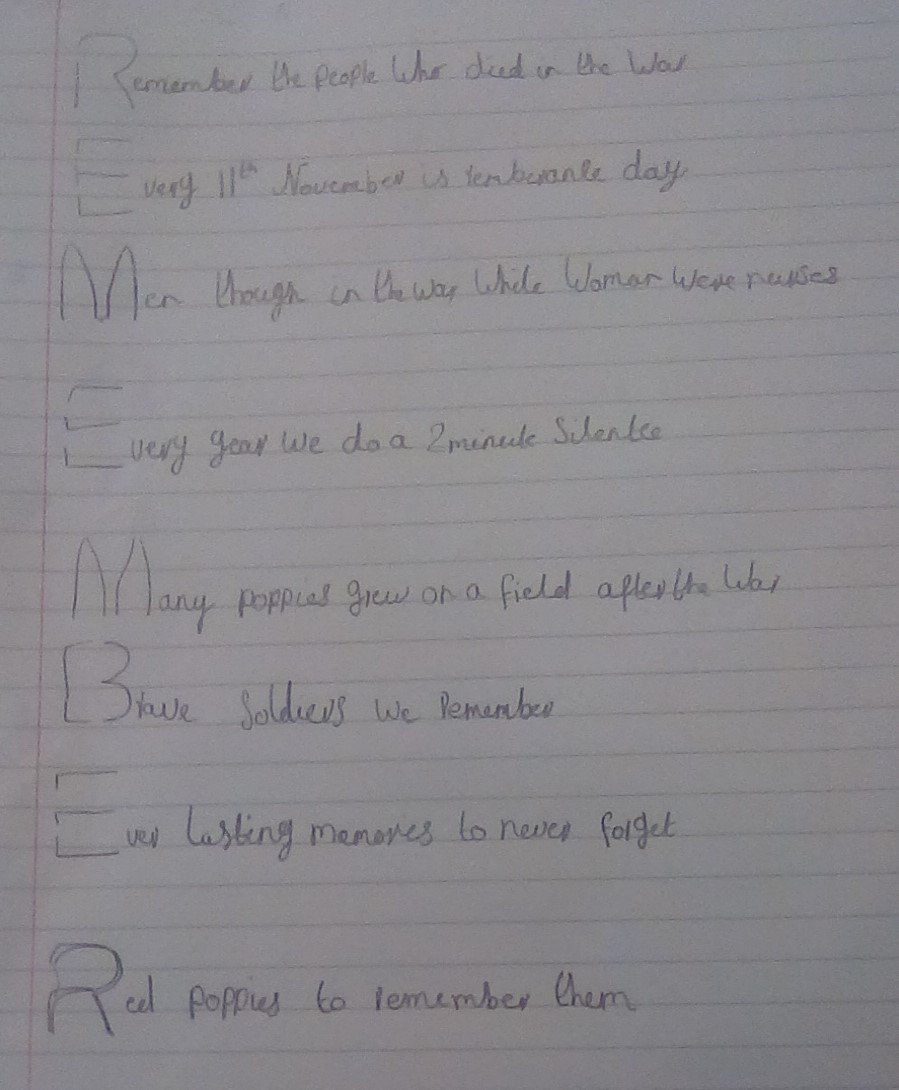 Remember the people Who died in the War
Every 11th November is remberance day
Men though in the war While Woman Were nurses
Every year We do a 2 minute Silentce
Many poppies grew on a field after the War
Brave Soldiers We Remember
Ever lasting memores to never forget
Red poppies to remember them